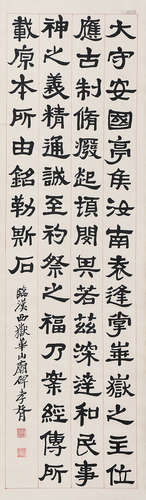 大守安國亭矦汝南袁逢掌華嶽之主位
應古制脩癈起頓閔其若茲深達和民事
神之義精通誠至礿祭之福乃案經傳所
載原本所由銘勒斯石
臨漢西嶽華山廟碑 孝胥